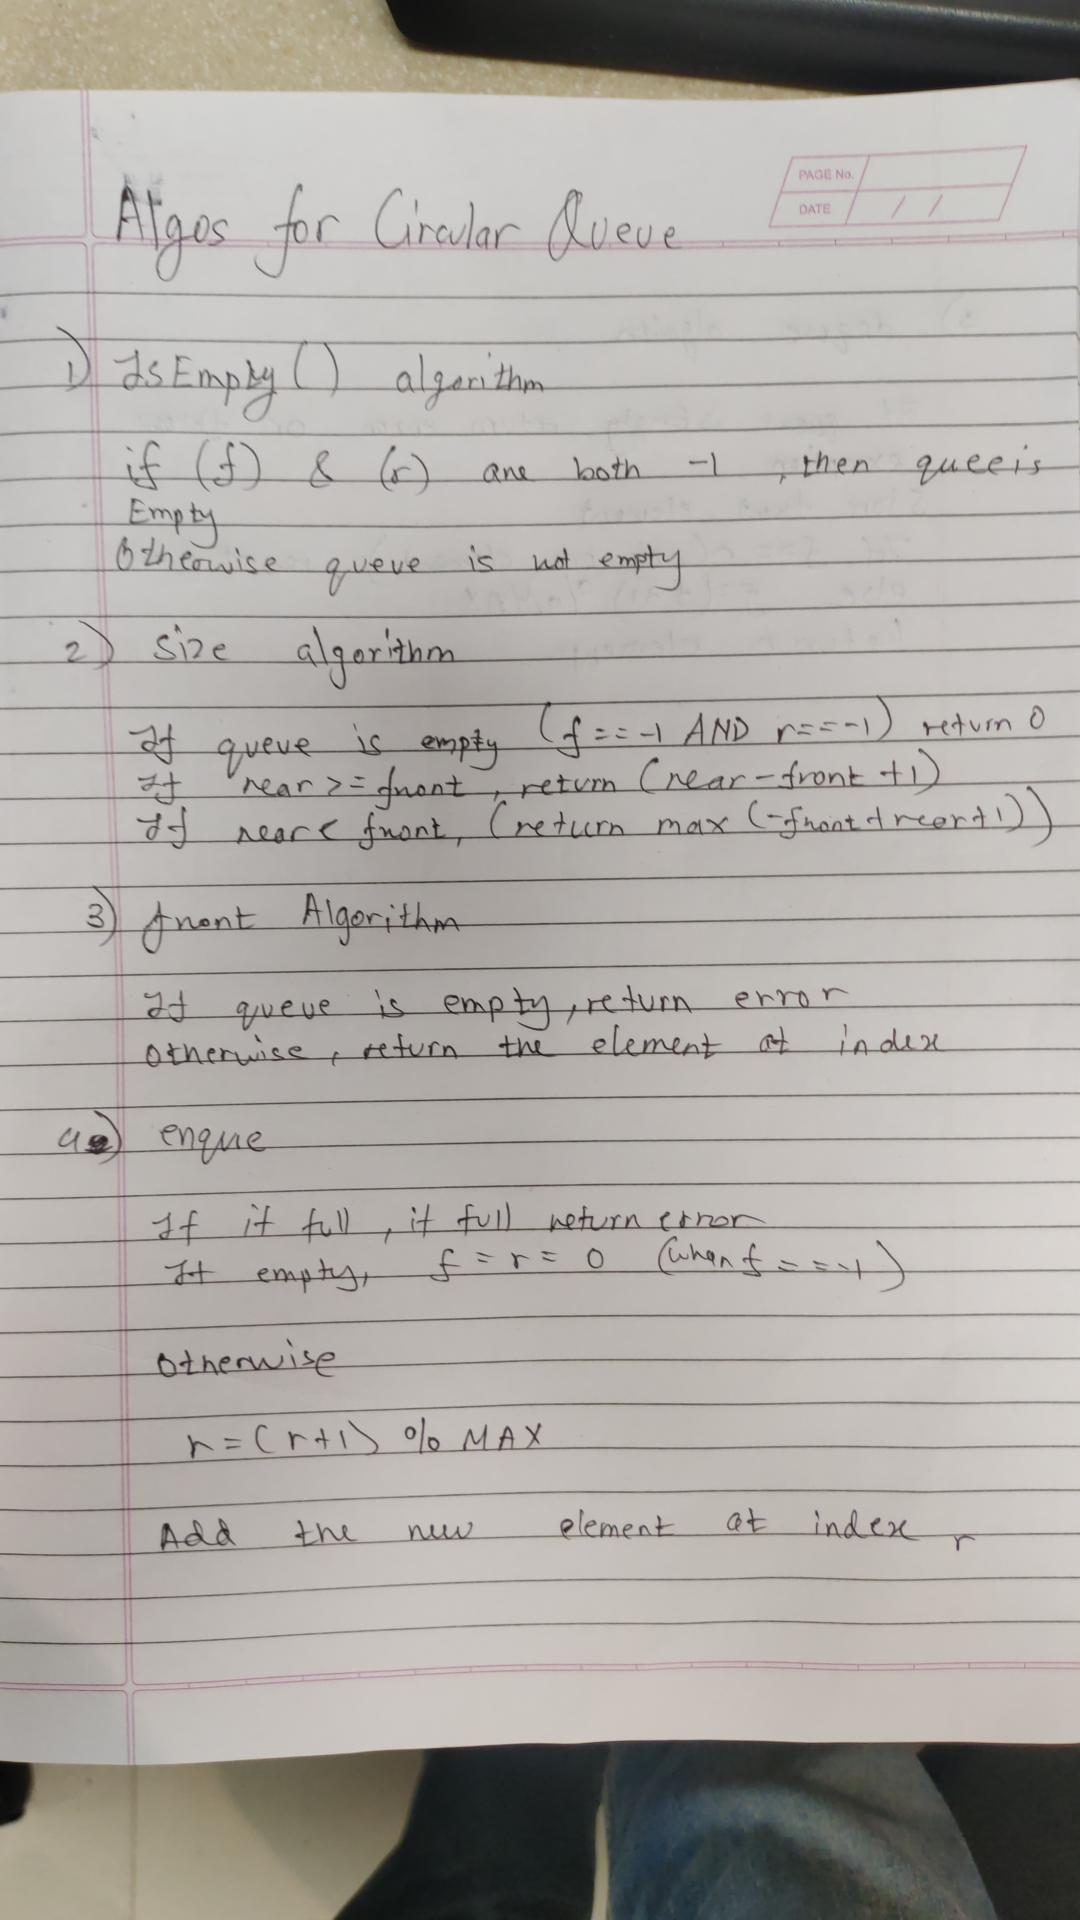 PAGE No.
DATE / /
Algos for Circular Queue
1) IsEmpty () algorithm
if (f) & (r) are both -1 , then quee is
Empty
Otherwise queue is not empty
2) Size algorithm
If queue is empty (f == -1 AND r == -1) return 0
If rear >= front , return (rear - front + 1)
If rear < front, (return max (-front + rear + 1))
3) front Algorithm
If queue is empty, return error
otherwise, return the element at index
4) enque
If it full , if full return error
If empty, f = r = 0 (when f == -1)
Otherwise
r = (r+1) % MAX
Add the new element at index r